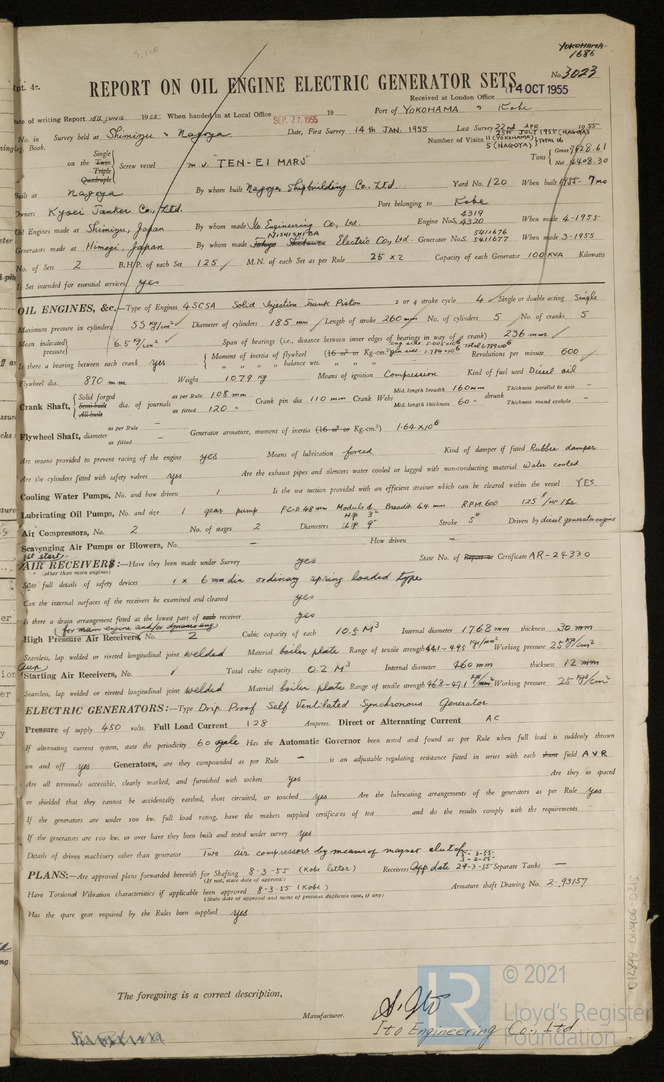 YOKOHAMA
1686
No. 3023
REPORT ON OIL ENGINE ELECTRIC GENERATOR SETS
14 OCT 1955
Received at London Office
Date of writing Report 19 When handed in at Local Office SEP 27 1955 19 Port of YOKOHAMA & Kobe
No. in Book. Survey held at Shimizu & Nagoya Date, First Survey 14th JAN. 1955 Last Survey 22nd APR 1955
Number of Visits 11 (YOKOHAMA) 5 (NAGOYA)
on the Single Twin Triple Quadruple Screw vessel m.v. "TEN-EI MARU" Tons Gross 7628.61 Net 4408.30
Built at Nagoya By whom built Nagoya Shipbuilding Co. Ltd. Yard No. 120 When built 1955-7mo
Owners Kyoei Tanker Co., Ltd. Port belonging to Kobe
Oil Engines made at Shimizu, Japan By whom made Ito Engineering Co., Ltd. Engine Nos. 4319 4320 When made 4-1955
Generators made at Himeji, Japan By whom made NISHISHIBA Electric Co., Ltd Generator Nos. 5411676 5411677 When made 3-1955
No. of Sets 2 B.H.P. of each Set 125 M.N. of each Set as per Rule 25 x 2 Capacity of each Generator 100 KVA Kilowatts
Is Set intended for essential services yes
OIL ENGINES, &c.—Type of Engines 4SC5A Solid Injection Trunk Piston 2 or 4 stroke cycle 4 Single or double acting Single
Maximum pressure in cylinders 55 kg/cm² Diameter of cylinders 185 mm Length of stroke 260 mm No. of cylinders 5 No. of cranks 5
Mean indicated pressure 6.5 kg/cm² Span of bearings (i.e., distance between inner edges of bearings in way of a crank) 236 mm
Is there a bearing between each crank yes Moment of inertia of flywheel (16 m² or Kg.-cm.²) Revolutions per minute 600
" " " " balance wts. " " "
Flywheel dia. 870 mm Weight 1079 kg Means of ignition Compression Kind of fuel used Diesel oil
Crank Shaft, Solid forged Semi built All built dia. of journals as per Rule 108 mm as fitted 120 Crank pin dia 110 mm Crank Webs Mid. length breadth 160 mm Mid. length thickness 60 shrunk Thickness parallel to axis — Thickness round eyehole —
Flywheel Shaft, diameter as per Rule — as fitted — Generator armature, moment of inertia (16 m² or Kg.-cm.²) 1.64 x 10⁶
Are means provided to prevent racing of the engine yes Means of lubrication forced Kind of damper if fitted Rubber damper
Are the cylinders fitted with safety valves yes Are the exhaust pipes and silencers water cooled or lagged with non-conducting material Water cooled
Cooling Water Pumps, No. and how driven 1 Is the sea suction provided with an efficient strainer which can be cleared within the vessel YES.
Lubricating Oil Pumps, No. and size 1 gear pump P.C.D 48 mm Module 4 Breadth 64 mm R.P.M. 600
Air Compressors, No. 2 No. of stages 2 Diameters H.P. 3" L.P. 9" Stroke 5" Driven by diesel generator engine
Scavenging Air Pumps or Blowers, No. — How driven —
AIR RECEIVERS:—Have they been made under Survey yes State No. of Report or Certificate AR-24330
(other than main engines)
State full details of safety devices 1 x 6 mm dia ordinary spring loaded type
Can the internal surfaces of the receivers be examined and cleaned yes
Is there a drain arrangement fitted at the lowest part of each receiver yes
(for main engine and/or dynamo eng)
High Pressure Air Receivers, No. 2 Cubic capacity of each 10.5 M³ Internal diameter 1768 mm thickness 30 mm
Seamless, lap welded or riveted longitudinal joint welded Material boiler plate Range of tensile strength 44.1–49.5 kg/mm² Working pressure 25 kg/cm²
Starting Air Receivers, No. Total cubic capacity 0.2 M³ Internal diameter 460 mm thickness 12 mm
Seamless, lap welded or riveted longitudinal joint welded Material boiler plate Range of tensile strength 46.8–47.1 kg/mm² Working pressure 25 kg/cm²
ELECTRIC GENERATORS:—Type Drip Proof Self Ventilated Synchronous Generator
Pressure of supply 450 volts. Full Load Current 128 Amperes. Direct or Alternating Current AC
If alternating current system, state the periodicity 60 cycle Has the Automatic Governor been tested and found as per Rule when full load is suddenly thrown
on and off yes Generators, are they compounded as per Rule — is an adjustable regulating resistance fitted in series with each shunt field AVR
Are all terminals accessible, clearly marked, and furnished with sockets yes Are they so spaced
or shielded that they cannot be accidentally earthed, short circuited, or touched yes Are the lubricating arrangements of the generators as per Rule yes
If the generators are under 100 kw. full load rating, have the makers supplied certificates of test and do the results comply with the requirements
If the generators are 100 kw. or over have they been built and tested under survey yes
Details of driven machinery other than generator Two air compressors by means of magnet clutch
PLANS:—Are approved plans forwarded herewith for Shafting 8-3-55 (Kobe letter) Receivers App. date 24-3-55 Separate Tanks —
(If not, state date of approval)
Have Torsional Vibration characteristics if applicable been approved 8-3-55 (Kobe) Armature shaft Drawing No. 2-93157
(State date of approval and name of previous duplicate case, if any)
Has the spare gear required by the Rules been supplied yes
The foregoing is a correct description,
Manufacturer. S. Ito
Ito Engineering Co., Ltd
LR
© 2021
Lloyd's Register
Foundation